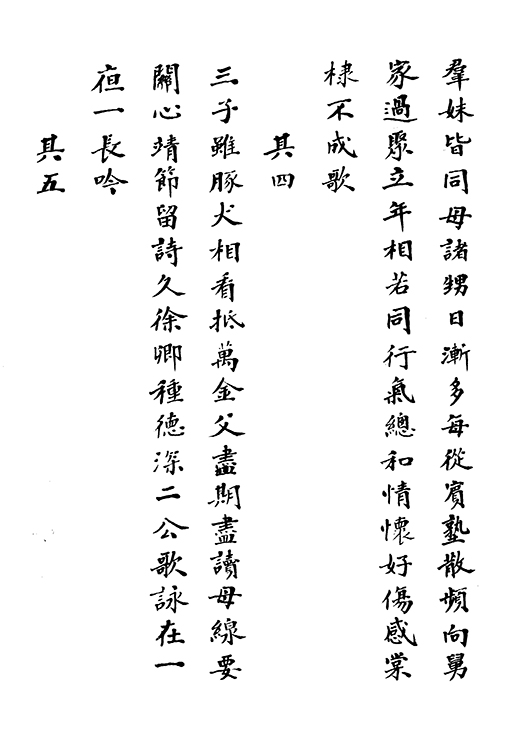 羣妹皆同母諸甥日漸多每從賓塾散頻向舅
家過聚立年相若同行氣總和情懷好傷感棠
棣不成歌
其四
三子雖豚犬相看抵萬金父書期盡讀母線要
關心靖節留詩久徐卿種德深二公歌詠在一
夜一長吟
其五